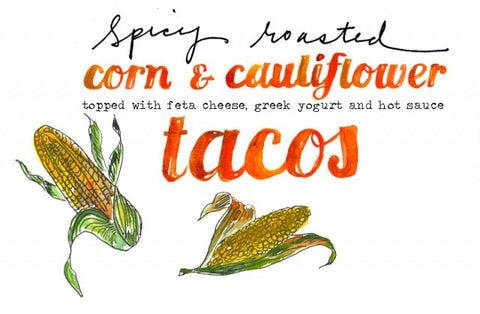 Spicy roasted
corn & cauliflower
topped with feta cheese, greek yogurt and hot sauce
tacos